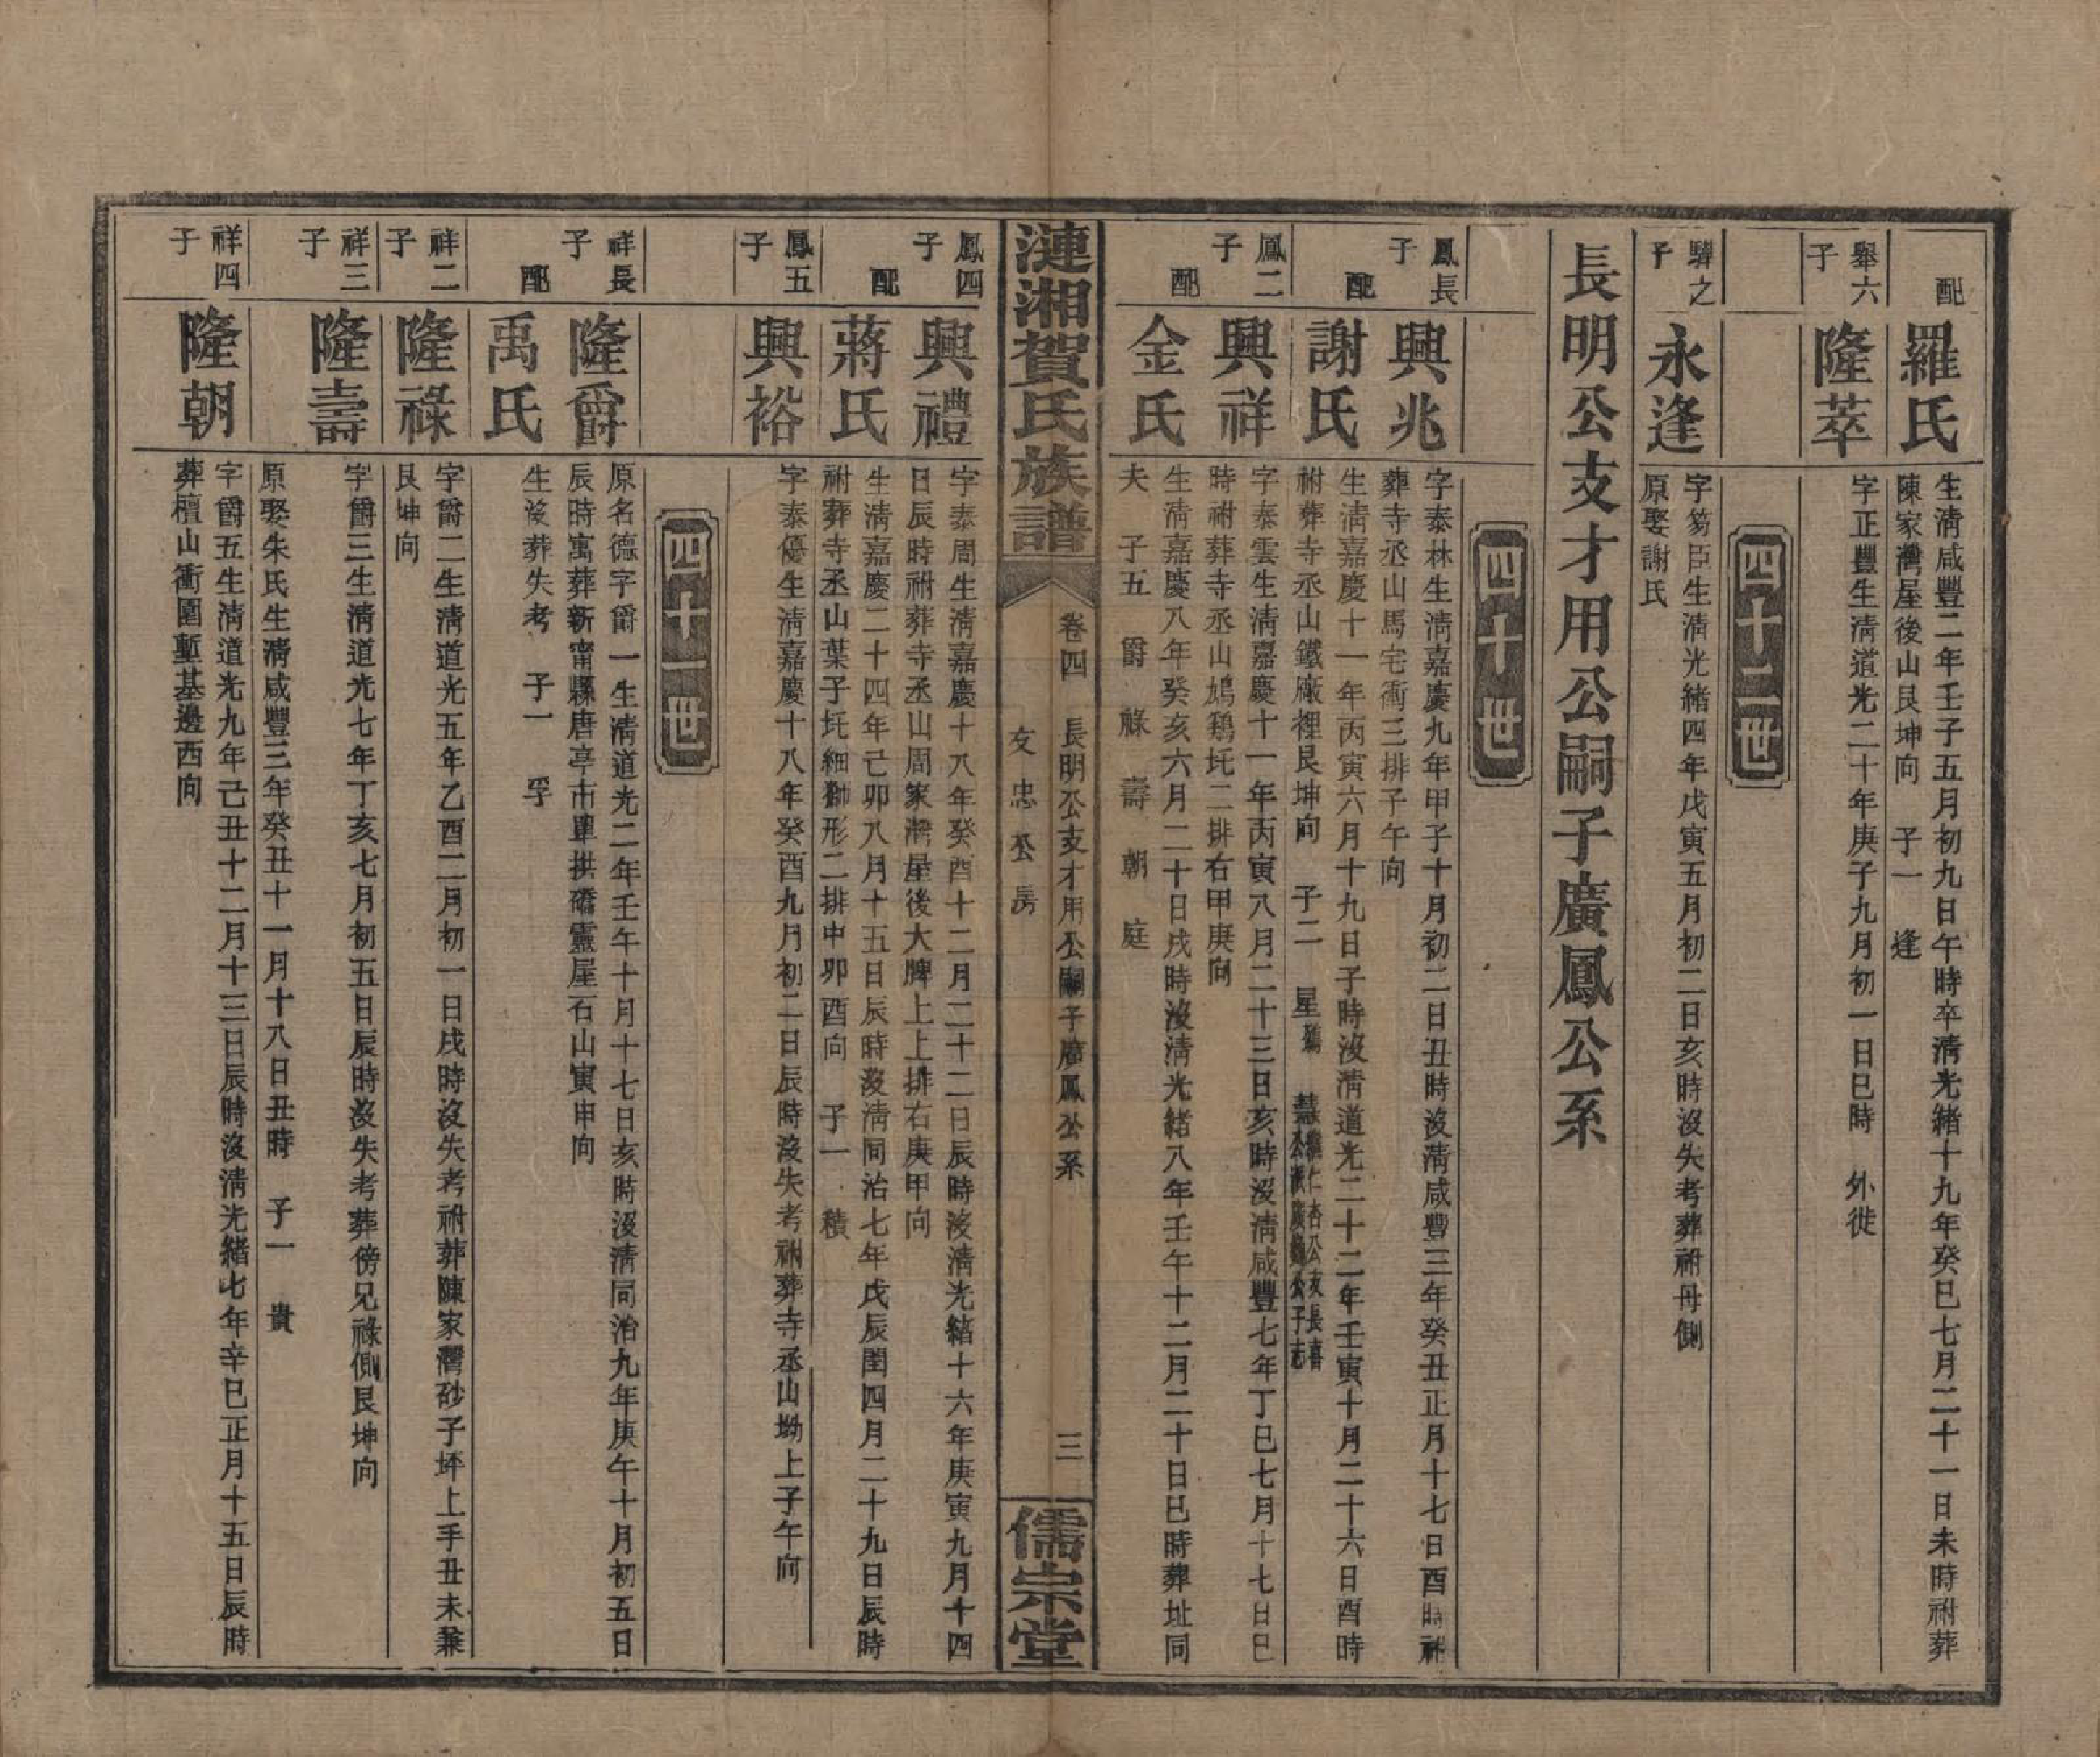 配
羅氏
生淸咸豐二年壬子五月初九日午時卒淸光緒十九年癸巳七月二十一日未時祔葬
陳家灣屋後山艮坤向　子一　逢
舉六
子
隆萃
字正豐生淸道光二十年庚子九月初一日巳時　外徙
四十二世
驊之
子
永逢
字芴臣生淸光緒四年戊寅五月初二日亥時沒失考葬祔母側
原娶謝氏
長明公支才用公嗣子廣鳳公系
四十世
鳳長
子
興兆
字泰林生淸嘉慶九年甲子十月初二日丑時沒淸咸豐三年癸丑正月十七日酉時祔
葬寺丞山馬宅衝三排子午向
配
謝氏
生淸嘉慶十一年丙寅六月十九日子時沒淸道光二十二年壬寅十月二十六日酉時
祔葬寺丞山鐵廠裡艮坤向　子二　星　慧
鳳二
子
興祥
字泰雲生淸嘉慶十一年丙寅八月二十三日亥時沒淸咸豐七年丁巳七月十七日巳
時祔葬寺丞山鳩鷄圫二排右甲庚向
配
金氏
生淸嘉慶八年癸亥六月二十日戌時沒淸光緒八年壬午十二月二十日巳時葬址同
夫　子五　爵　祿　壽　朝　庭
漣湘賀氏族譜
卷四　長明公支才用公嗣子廣鳳公系　三
友忠公房
儒宗堂
鳳四
子
興禮
字泰周生淸嘉慶十八年癸酉十二月二十二日辰時沒淸光緒十六年庚寅九月十四
日辰時祔葬寺丞山周家灣屋後大牌上上排右庚甲向
配
蔣氏
生淸嘉慶二十四年己卯八月十五日辰時沒淸同治七年戊辰閏四月二十九日辰時
祔葬寺丞山葉子圫細獅形二排中卯酉向　子一　積
鳳五
子
興裕
字泰優生淸嘉慶十八年癸酉九月初二日辰時沒失考祔葬寺丞山坳上子午向
四十一世
祥長
子
隆爵
原名德字爵一生淸道光二年壬午十月十七日亥時沒淸同治九年庚午十月初五日
辰時寓葬新甯縣唐亭市單拱礄靈屋石山寅申向
配
禹氏
生沒葬失考　子一　孚
祥二
子
隆祿
字爵二生淸道光五年乙酉二月初一日戌時沒失考祔葬陳家灣砂子坪上手丑未兼
艮坤向
祥三
子
隆壽
字爵三生淸道光七年丁亥七月初五日辰時沒失考葬傍兄祿側艮坤向
原娶朱氏生淸咸豐三年癸丑十一月十八日丑時　子一　貴
祥四
子
隆朝
字爵五生淸道光九年己丑十二月十三日辰時沒淸光緒七年辛巳正月十五日辰時
葬檀山衝圍塹基邊西向